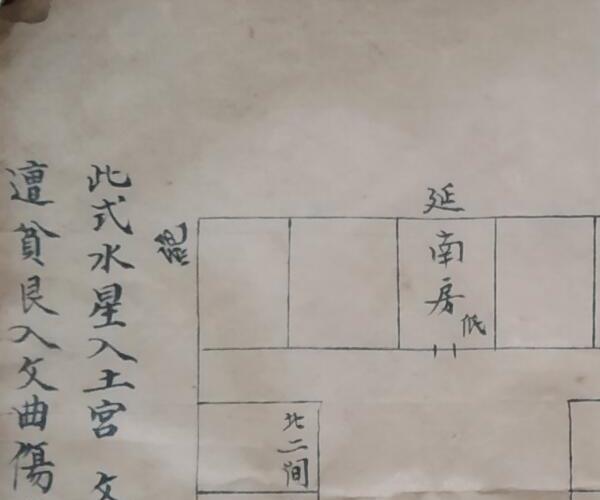 延
南房
低
北二间
此式水星入土宫 文
遭貧艮入文曲傷